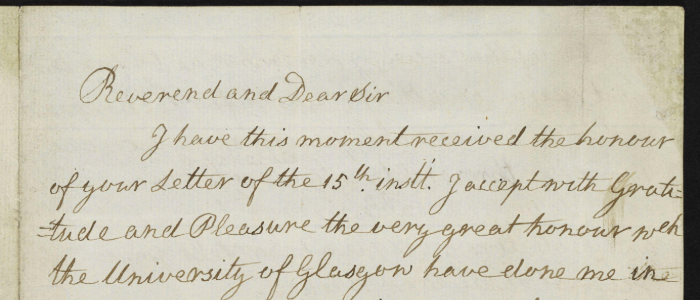 Reverend and Dear Sir
I have this moment received the honour
of your Letter of the 15th. instt. I accept with Grati=
=tude and Pleasure the very great honour wch
the University of Glasgow have done me in